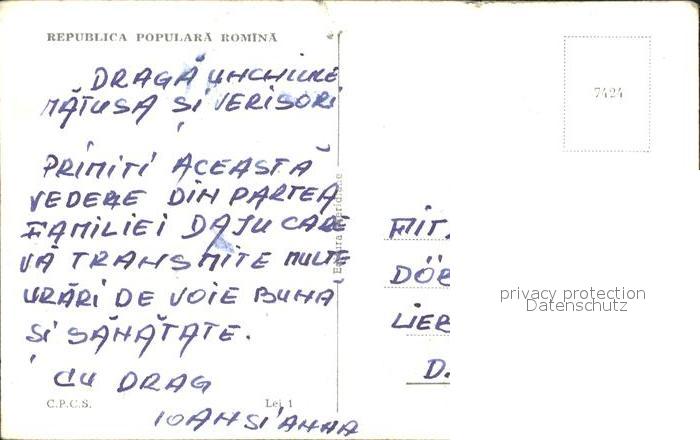 REPUBLICA POPULARĂ ROMÎNĂ
DRAGĂ UNCHIULE
MĂTUSA ȘI VERISORI
PRIMITI ACEASTĂ
VEDERE DIN PARTEA
FAMILIEI DAJU CARE
VĂ TRANSMITE MULTE
URĂRI DE VOIE BUNĂ
ȘI SĂNĂTATE.
CU DRAG
IOAN ȘI ANNA
C.P.C.S.
Lei 1
7424
DÖB
LIEB
D.
privacy protection
Datenschutz